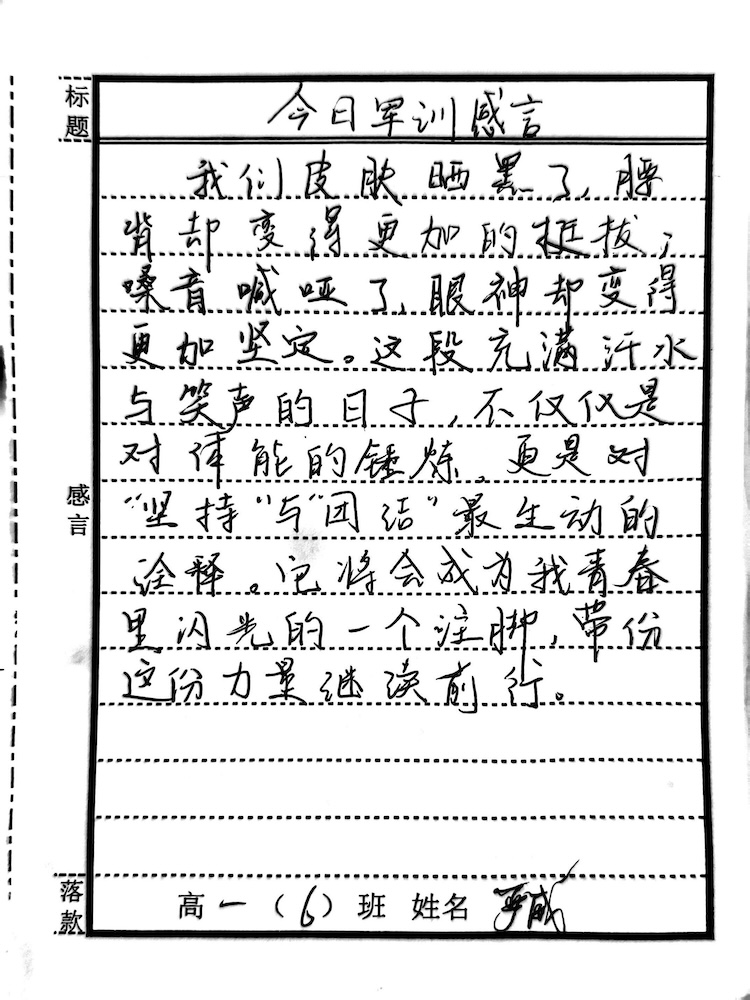 标题
今日军训感言
我们皮肤晒黑了，腰
背却变得更加的挺拔；
嗓音喊哑了，眼神却变得
更加坚定。这段充满汗水
与笑声的日子，不仅仅是
对体能的锤炼，更是对
“坚持”与“团结”最生动的
诠释。它将会成为我青春
里闪光的一个注脚，带份
这份力量继续前行。
感言
落款
高一（6）班 姓名 严威